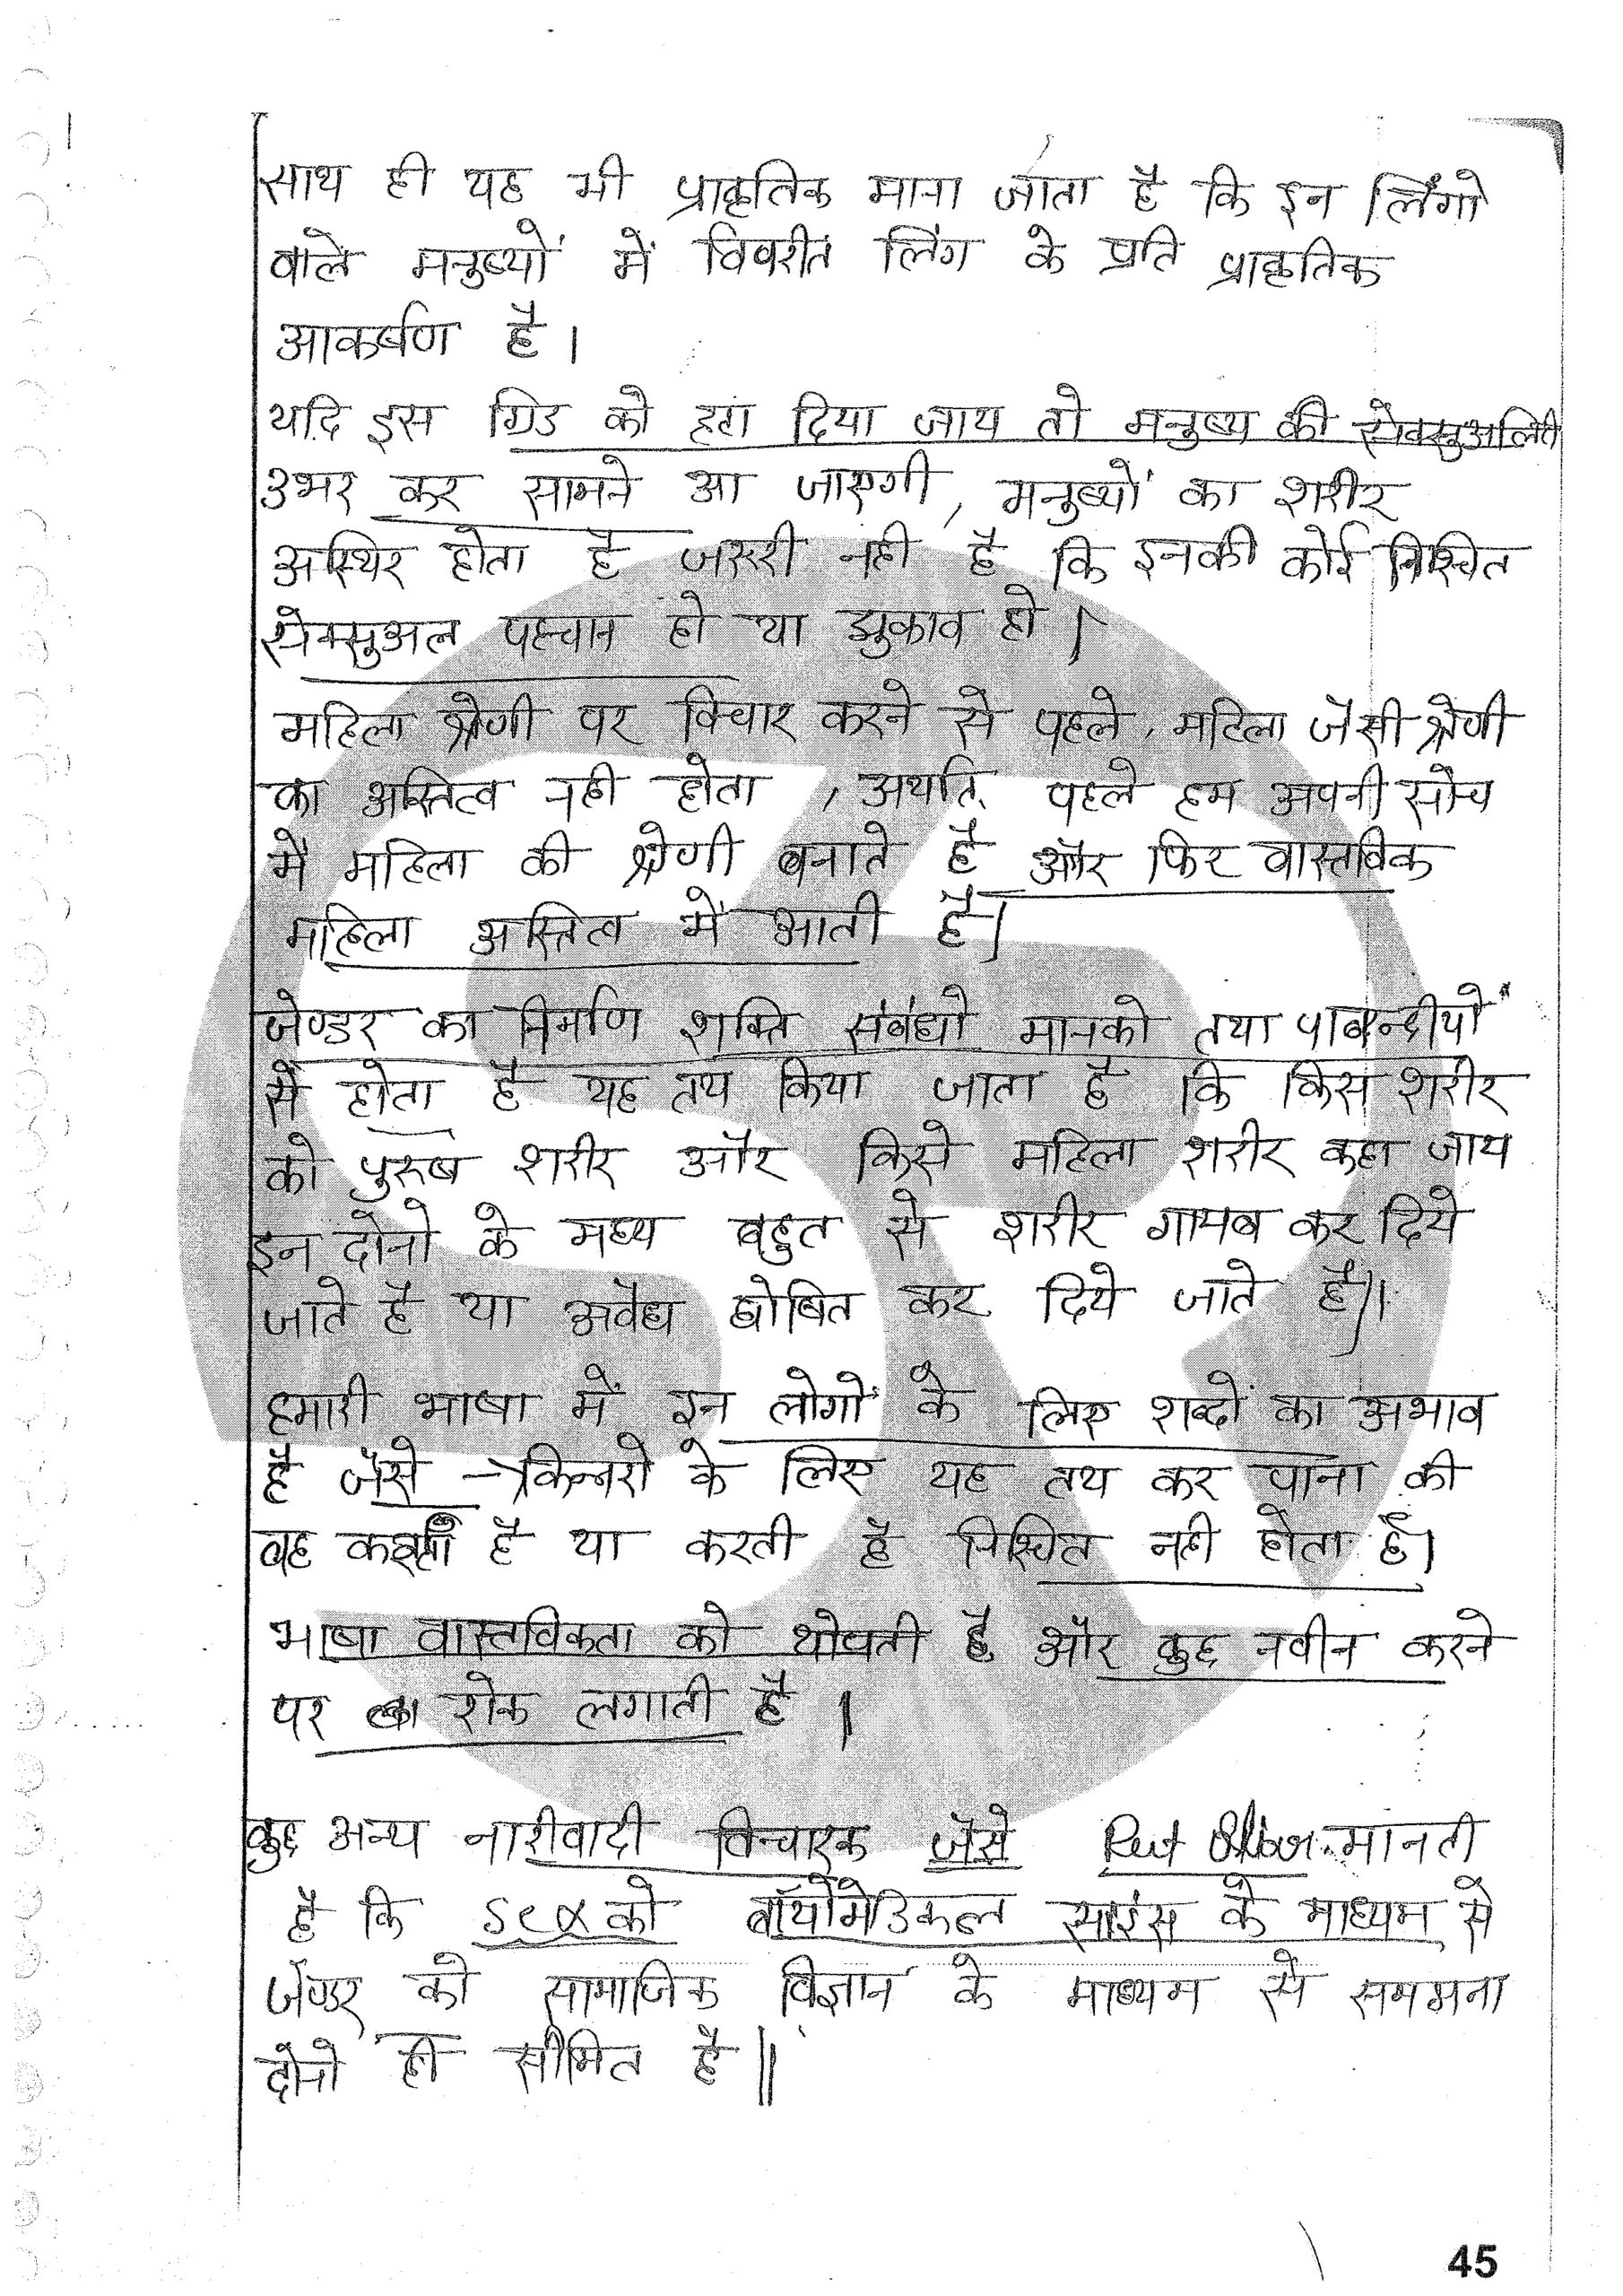 साथ ही यह भी प्राकृतिक माना जाता है कि इन लिंगो
वाले मनुष्यों में विपरीत लिंग के प्रति प्राकृतिक
आकर्षण है।
यदि इस ग्रिड को हटा दिया जाय तो मनुष्य की सेक्सुअलिटी
उभर कर सामने आ जाएगी, मनुष्यों का शरीर
अस्थिर होता है जरुरी नही है कि इनकी कोई निश्चित
सेक्सुअल पहचान हो या झुकाव हो।
महिला श्रेणी पर विचार करने से पहले, महिला जैसी श्रेणी
का अस्तित्व नही होता, अर्थात् पहले हम अपनी सोच
में महिला की श्रेणी बनाते है और फिर वास्तविक
महिला अस्तित्व में आती है।
जेण्डर का निर्माण शक्ति संबंधो मानको तथा पाबन्दीयों
से होता है यह तय किया जाता है कि किस शरीर
को पुरुष शरीर और किसे महिला शरीर कहा जाय
इन दोनो के मध्य बहुत से शरीर गायब कर दिये
जाते है या अवैध घोषित कर दिये जाते है।।
हमारी भाषा में इन लोगों के लिए शब्दों का अभाव
है जैसे → किन्नरो के लिए यह तय कर पाना की
वह है या करती है निश्चित नही होता है।
भाषा वास्तविकता को थोपती है और कुछ नवीन करने
पर रोक लगाती है।
कुछ अन्य नारीवादी विचारक जैसे मानती
है कि Sex को बॉयोमेडिकल साइंस के माध्यम से
जेण्डर को सामाजिक विज्ञान के माध्यम से समझना
दोनो ही सीमित है||
45